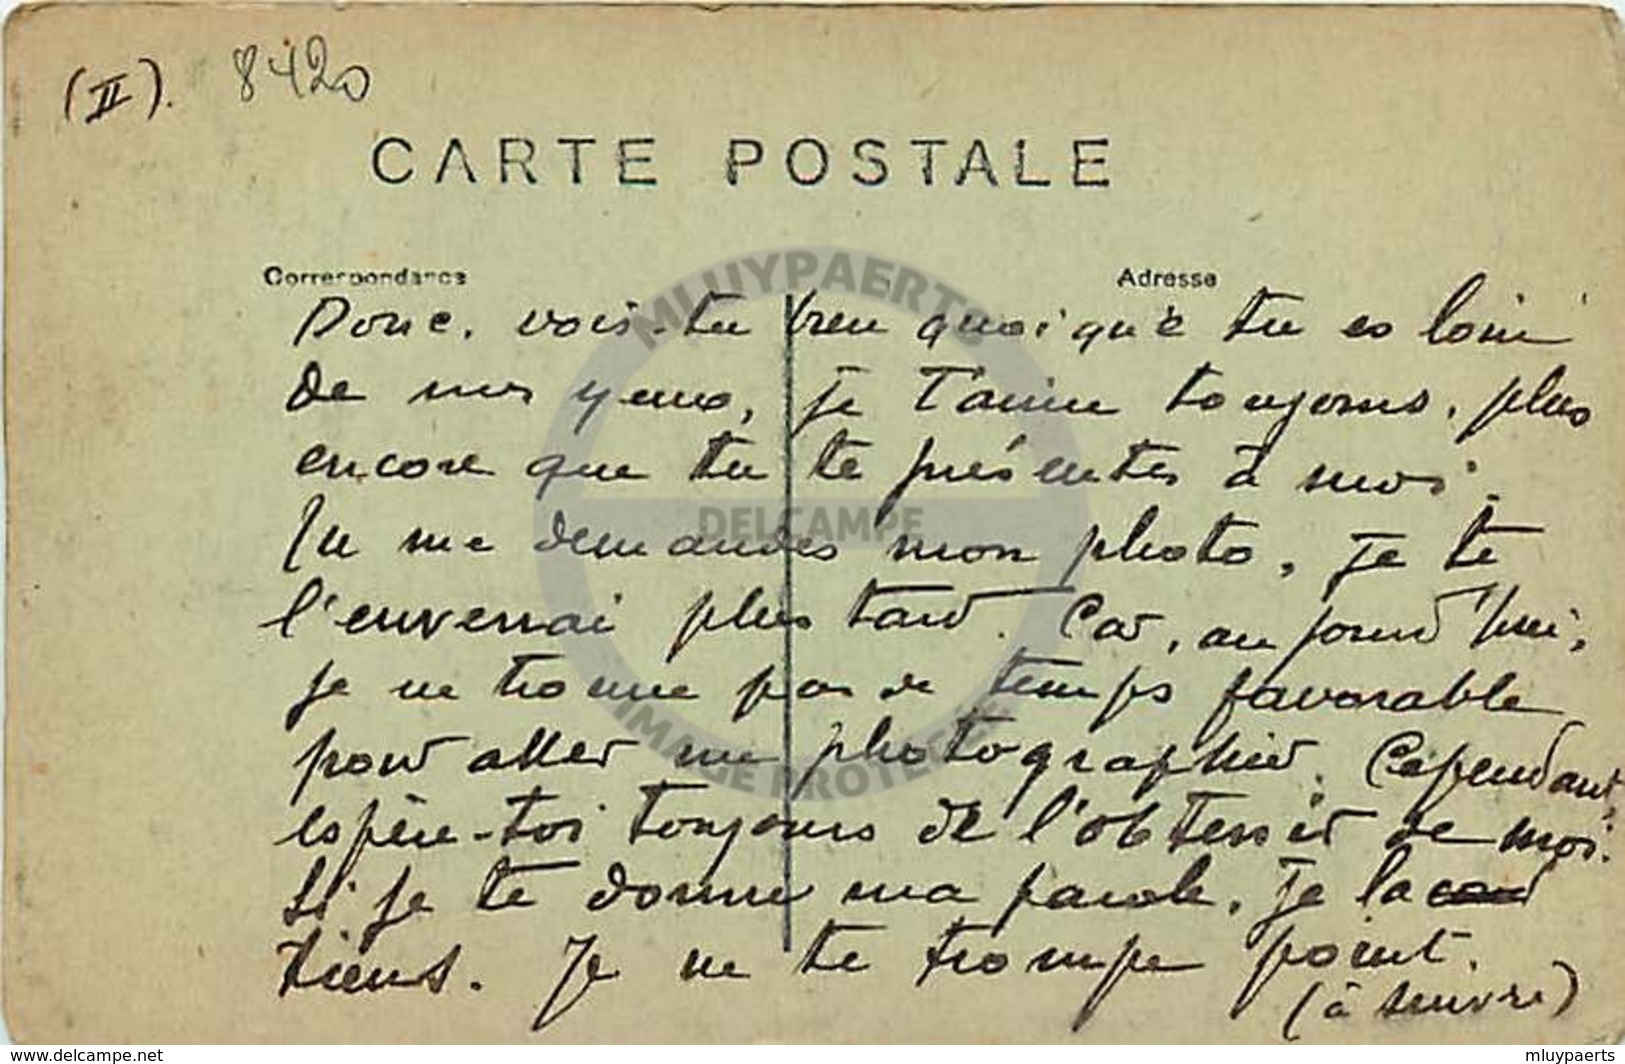 (II). 8420
CARTE POSTALE
Correspondance
Adresse
Donc, vois-tu bien quoique tu es loin
de mes yeux, je t'aime toujours, plus
encore que tu te présentes à moi.
Tu me demandes mon photo, je te
l'enverrai plus tard. Car, aujourd'hui,
je ne trouve pas de temps favorable
pour aller me photographier. Cependant,
espère-toi toujours de l'obtenir de moi.
Si je te donne ma parole, je la
tiens. Je ne te trompe point.
(à suivre)
MLUYPAERTS
DELCAMPE
IMAGE PROTÉGÉE
www.delcampe.net
mluypaerts